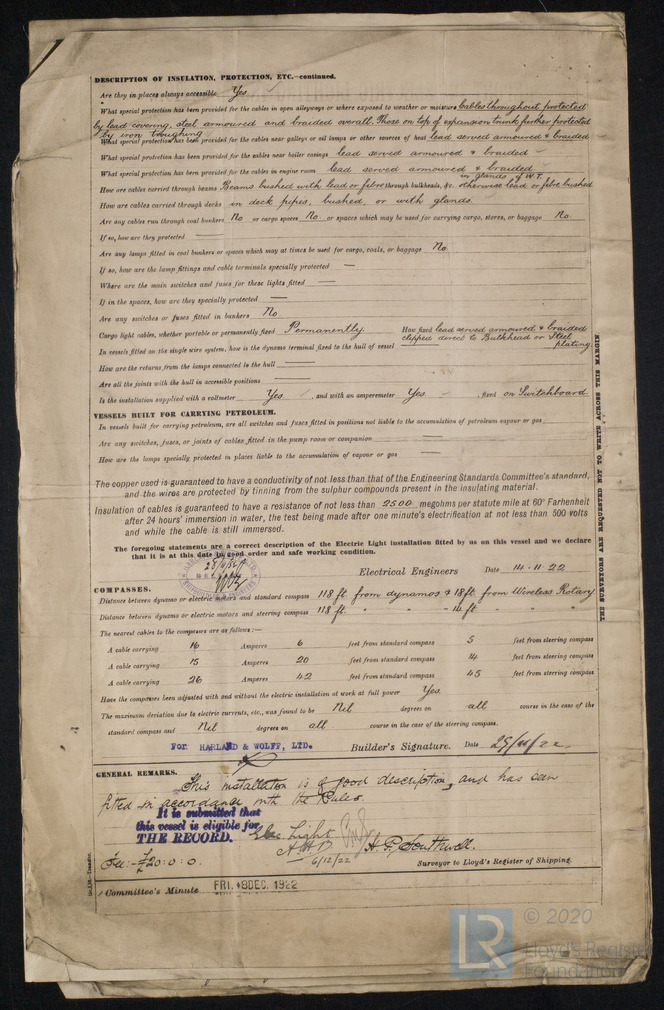 DESCRIPTION OF INSULATION, PROTECTION, ETC.—continued.
Are they in places always accessible Yes
What special protection has been provided for the cables in open alleyways or where exposed to weather or moisture Cables throughout protected
by lead covering, steel armoured and braided overall. Those on top of expansion trunk further protected
by iron troughing
What special protection has been provided for the cables near galleys or oil lamps or other sources of heat lead served armoured & braided
What special protection has been provided for the cables near boiler casings lead served armoured & braided
What special protection has been provided for the cables in engine room lead served armoured & braided
in glands if W.T.
How are cables carried through beams Beams bushed with lead or fibre through bulkheads, &c. otherwise lead or fibre bushed
How are cables carried through decks in deck pipes, bushed, or with glands.
Are any cables run through coal bunkers No or cargo spaces No or spaces which may be used for carrying cargo, stores, or baggage No.
If so, how are they protected —
Are any lamps fitted in coal bunkers or spaces which may at times be used for cargo, coals, or baggage No.
If so, how are the lamp fittings and cable terminals specially protected —
Where are the main switches and fuses for these lights fitted —
If in the spaces, how are they specially protected —
Are any switches or fuses fitted in bunkers No.
Cargo light cables, whether portable or permanently fixed Permanently. How fixed lead served armoured & braided
clipped direct to Bulkhead or Steel
plating.
In vessels fitted on the single wire system, how is the dynamo terminal fixed to the hull of vessel —
How are the returns from the lamps connected to the hull —
Are all the joints with the hull in accessible positions —
Is the installation supplied with a voltmeter Yes , and with an amperemeter Yes. , fixed on Switchboard.
VESSELS BUILT FOR CARRYING PETROLEUM.
In vessels built for carrying petroleum, are all switches and fuses fitted in positions not liable to the accumulation of petroleum vapour or gas
Are any switches, fuses, or joints of cables fitted in the pump room or companion —
How are the lamps specially protected in places liable to the accumulation of vapour or gas —
The copper used is guaranteed to have a conductivity of not less than that of the Engineering Standards Committee's standard,
and the wires are protected by tinning from the sulphur compounds present in the insulating material.
Insulation of cables is guaranteed to have a resistance of not less than 2500 megohms per statute mile at 60° Farhenheit
after 24 hours' immersion in water, the test being made after one minute's electrification at not less than 500 volts
and while the cable is still immersed.
The foregoing statements are a correct description of the Electric Light installation fitted by us on this vessel and we declare
that it is at this date in good order and safe working condition.
Electrical Engineers Date 14.11.22
COMPASSES.
Distance between dynamo or electric motors and standard compass 118 ft. from dynamos & 18 ft from Wireless Rotary
Distance between dynamo or electric motors and steering compass 118 ft. " " 14 ft " " "
The nearest cables to the compasses are as follows:—
A cable carrying 16 Amperes 6 feet from standard compass 5 feet from steering compass
A cable carrying 15 Amperes 20 feet from standard compass 14 feet from steering compass
A cable carrying 26 Amperes 42 feet from standard compass 45 feet from steering compass
Have the compasses been adjusted with and without the electric installation at work at full power Yes.
The maximum deviation due to electric currents, etc., was found to be Nil degrees on all course in the case of the
standard compass and Nil degrees on all course in the case of the steering compass.
FOR HARLAND & WOLFF, LTD. Builder's Signature. Date 29/11/22
GENERAL REMARKS.
This installation is of good description, and has been
fitted in accordance with the Rules.
It is submitted that
this vessel is eligible for
THE RECORD. Elec. Light
6/12/22
H. P. Southwell.
Fee: £20:0:0. Surveyor to Lloyd's Register of Shipping.
Committee's Minute FRI. 8 DEC. 1922
THE SURVEYORS ARE REQUESTED NOT TO WRITE ACROSS THIS MARGIN
LR
© 2020
Lloyd's Register
Foundation